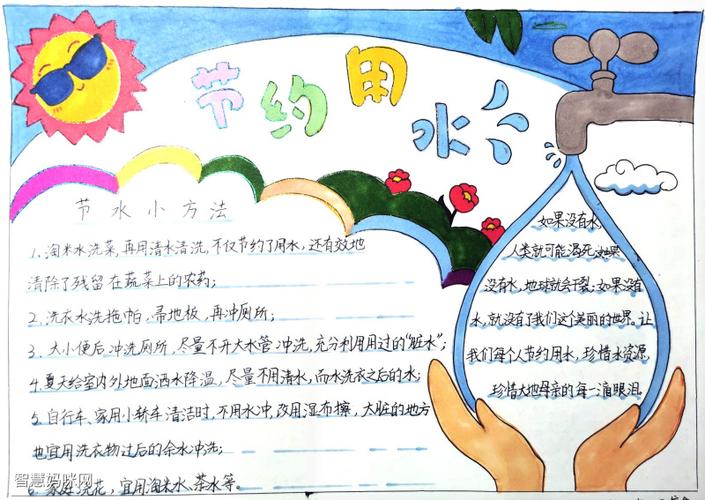 节约用水
节水小方法
1、淘米水洗菜,再用清水清洗,不仅节约了用水,还有效地
清除了残留在蔬菜上的农药;
2、洗衣水洗拖帕、帚地板,再冲厕所;
3、大小便后冲洗厕所,尽量不开大水管冲洗,充分利用用过的“脏水”;
4、夏天给室内外地面洒水降温,尽量不用清水,而水洗衣之后的水;
5、自行车、家用小轿车清洁时,不用水冲,改用湿布擦,大脏的地方
也宜用洗衣物过后的余水冲洗;
家庭浇花,宜用淘米水、茶水等。
如果没有水,
人类就可能渴死;如果
没有水,地球就会干裂;如果没有
水,就没有了我们这个美丽的世界。让
我们每个人节约用水,珍惜水资源,
珍惜大地母亲的每一滴眼泪。
智慧妈咪网